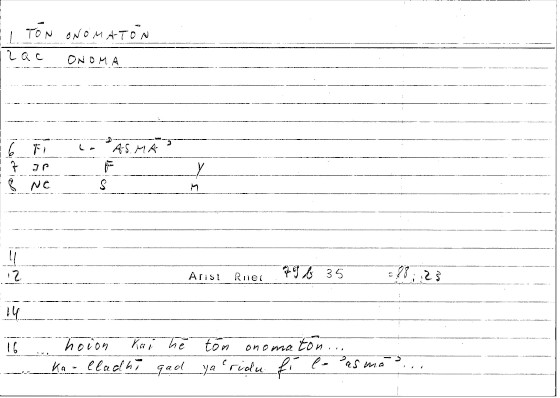 1 TŌN ONOMATŌN
2 QC ONOMA
6 FĪ L-ʾASMĀʾ
7 JP F Y
8 NC S M
11
12 Arist Rhet 79b 35 =88,23
14
16 ... hoion kai hē tōn onomatōn...
... ka-lladhī qad yaʿridu fī l-ʾasmāʾ...